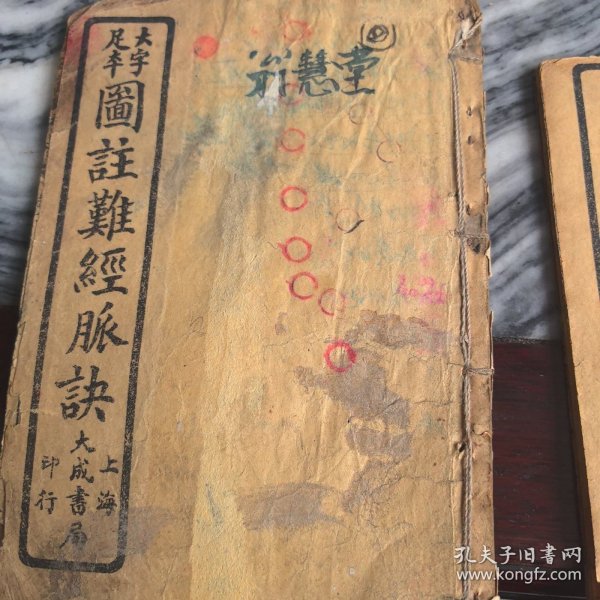 大字
足本
圖註難經脈訣
上海
大成書局
印行
翁慧堂
孔夫子旧书网
www.kongfz.com